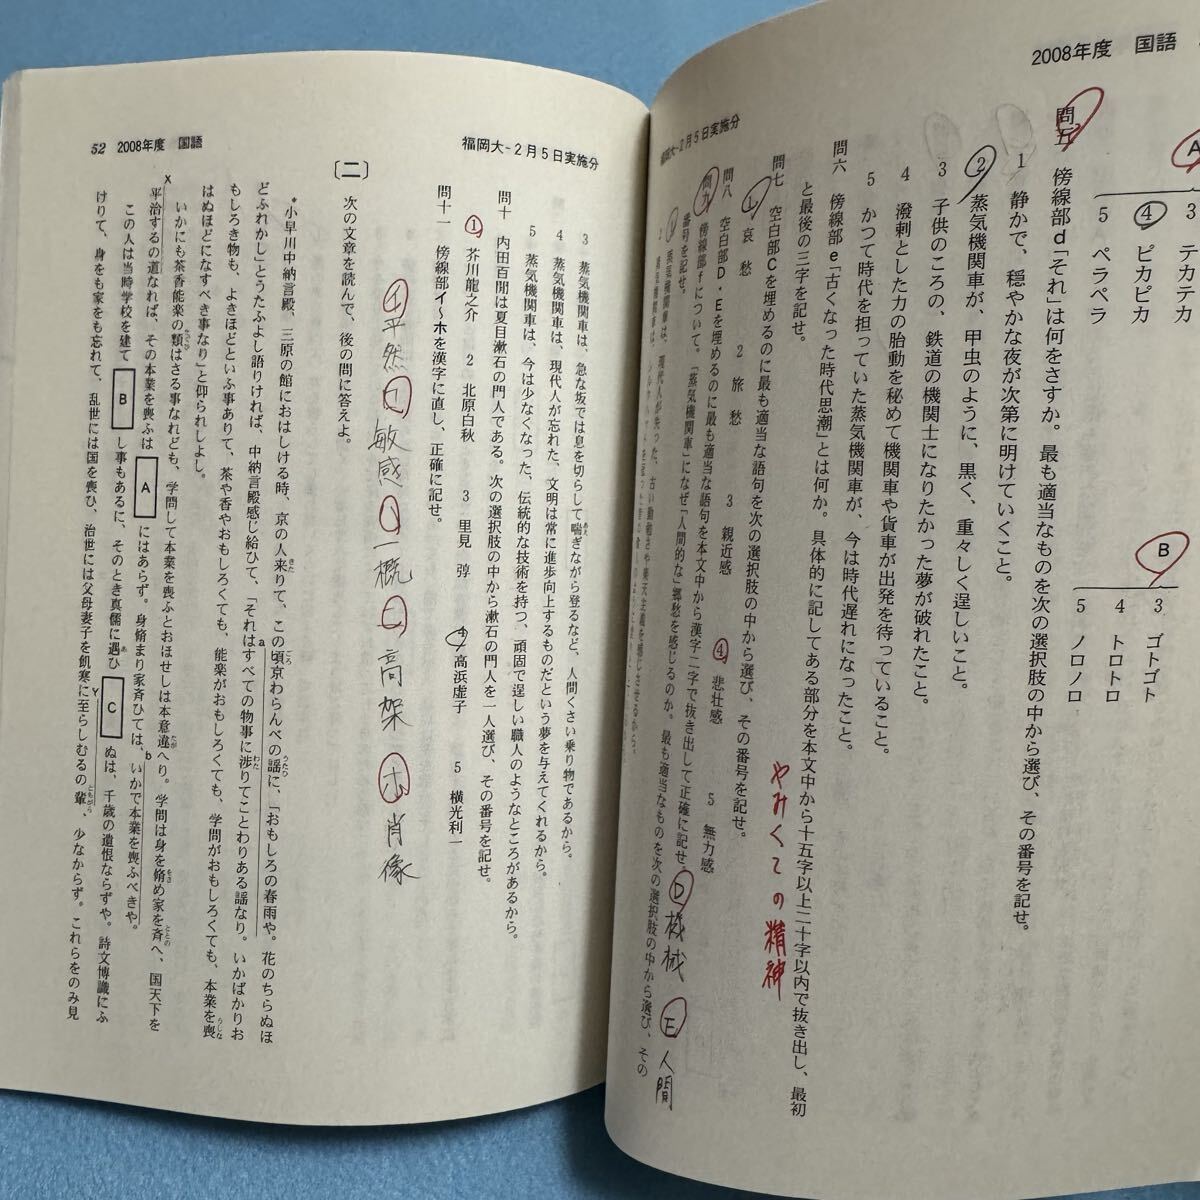 2008年度 国語
福岡大-2月5日実施分
A
3 テカテカ
4 ピカピカ
5 ペラペラ
B
3 ゴトゴト
4 トロトロ
5 ノロノロ
問五 傍線部d「それ」は何をさすか。最も適当なものを次の選択肢の中から選び、その番号を記せ。
1 静かで、穏やかな夜が次第に明けていくこと。
2 蒸気機関車が、甲虫のように、黒く、重々しく逞しいこと。
3 子供のころの、鉄道の機関士になりたかった夢が破れたこと。
4 潑剌とした力の胎動を秘めて機関車や貨車が出発を待っていること。
5 かつて時代を担っていた蒸気機関車が、今は時代遅れになったこと。
問六 傍線部e「古くなった時代思潮」とは何か。具体的に記してある部分を本文中から十五字以上二十字以内で抜き出し、最初
と最後の三字を記せ。
やみくて
の精神
問七 空白部Cを埋めるのに最も適当な語句を次の選択肢の中から選び、その番号を記せ。
1 哀愁 2 旅愁 3 親近感 4 悲壮感 5 無力感
問八 空白部D・Eを埋めるのに最も適当な語句を本文中から漢字二字で抜き出して正確に記せ。
D 機械 E 人間
問九 傍線部fについて。「蒸気機関車」になぜ「人間的な」郷愁を感じるのか。最も適当なものを次の選択肢の中から選び、その
番号を記せ。
52 2008年度 国語
福岡大-2月5日実施分
3 蒸気機関車は、急な坂では息を切らして喘ぎながら登るなど、人間くさい乗り物であるから。
4 蒸気機関車は、現代人が忘れた、文明は常に進歩向上するものだという夢を与えてくれるから。
5 蒸気機関車は、今は少なくなった、伝統的な技術を持つ、頑固で逞しい職人のようなところがあるから。
問十 内田百閒は夏目漱石の門人である。次の選択肢の中から漱石の門人を一人選び、その番号を記せ。
1 芥川龍之介 2 北原白秋 3 里見弴 4 高浜虚子 5 横光利一
問十一 傍線部イ〜ホを漢字に直し、正確に記せ。
イ 平然 ロ 敏感 ハ 一概 ニ 高架 ホ 肖像
〔二〕
次の文章を読んで、後の問に答えよ。
*小早川中納言殿、三原の館におはしける時、京の人来りて、この頃京わらんべの謡に、「おもしろの春雨や。花のちらぬほ
どふれかし」とうたふよし語りければ、中納言殿感じ給ひて、「それはすべての物事に渉りてことわりある謡なり。いかばかりお
もしろき物も、よきほどといふ事ありて、茶や香やおもしろくても、能楽がおもしろくても、学問がおもしろくても、本業を喪
はぬほどになすべき事なり」と仰られしよし。
いかにも茶香能楽の類はさる事なれども、学問して本業を喪ふとおほせしは本意違へり。学問は身を脩め家を斉へ、国天下を
平治するの道なれば、その本業を喪ふは A にはあらず。身脩まり家斉ひては、いかで本業を喪ふべきや。
この人は当時学校を建て B し事もあるに、そのとき真儒に遇ひ C ぬは、千歳の遺恨ならずや。詩文博識にふ
けりて、身をも家をも忘れて、乱世には国を喪ひ、治世には父母妻子を飢寒に至らしむるの輩、少なからず。これらをのみ見